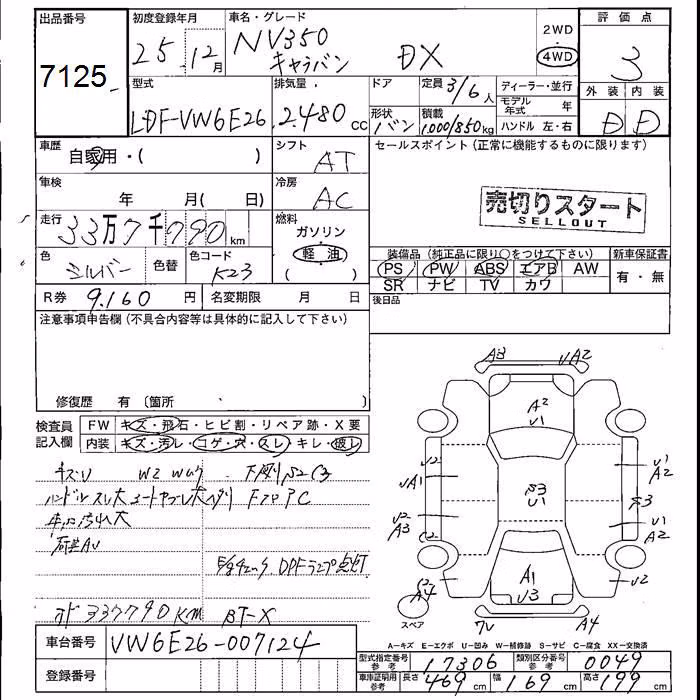 出品番号
7125
初度登録年月
25 12月
車名・グレード
NV350
キャラバン DX
2WD
4WD
評価点
3
外装 内装
D D
型式
LDF-VW6E26
排気量
2480cc
ドア
形状
バン
定員 3/6人
積載
1000/850kg
ディーラー・並行
モデル年式 年
ハンドル 左・右
車歴
自家用・( )
シフト
AT
セールスポイント(正常に機能するものに限ります)
車検
年 月( 日)
冷房
AC
売切りスタート
SELLOUT
走行
33万7千790km
燃料
ガソリン
軽油
( )
色
シルバー
色替
色コード
K23
装備品(純正品に限り○をつけて下さい)
PS PW ABS エアB AW
SR ナビ TV カワ
新車保証書
有・無
R券 9.160円
名変期限 月 日
後日品
注意事項申告欄(不具合内容等は具体的に記入して下さい)
修復歴 有(箇所 )
検査員記入欄
FW キズ・飛石・ヒビ割・リペア跡・X要
内装 キズ・汚レ・コゲ・穴・スレ・キレ・破レ
キズU W2 下廻りS2C3
ハンドルスレ大
車内汚れ大
DPFランプ点灯
337790KM
A3 UA2
A2
U1
U2
UA1
U2
A3
C2
S3
U1
U1
A2
S3
U1
A2
C2
A4
U2
A1
U3
A4
スペア
車台番号 VW6E26-007124
登録番号
A-キズ E-エクボ U-凹み W-補修跡 S-サビ C-腐食 XX-交換済
型式指定番号 参考 17306
類別区分番号 参考 0049
車庫証明用 参考 長さ 469cm 幅 169cm 高さ 199cm